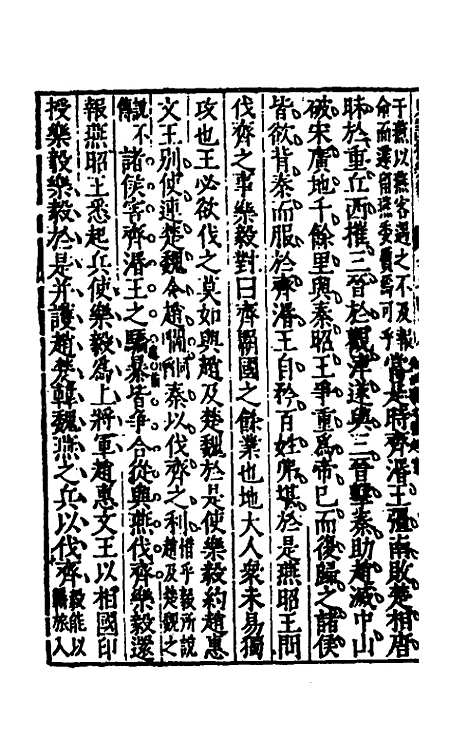 于燕以燕客遇之不及報
命而遽留燕委質焉可乎
當是時齊湣王彊南敗楚相唐
昧於重丘西摧三晉於觀津遂與三晉擊秦助趙滅中山
破宋廣地千餘里與秦昭王爭重爲帝已而復歸之諸侯
皆欲背秦而服於齊湣王自矜百姓弗堪於是燕昭王問
伐齊之事樂毅對曰齊霸國之餘業也地大人衆未易獨
攻也王必欲伐之莫如與趙及楚魏於是使樂毅約趙惠
文王別使連楚魏令趙嚪秦以伐齊之利
惜乎毅所說
趙及楚魏之
說不
傳
諸侯害齊湣王之驕暴皆爭合從與燕伐齊樂毅還
報燕昭王悉起兵使樂毅爲上將軍趙惠文王以相國印
授樂毅樂毅於是并護趙楚韓魏燕之兵以伐齊
毅能以
羈旅入